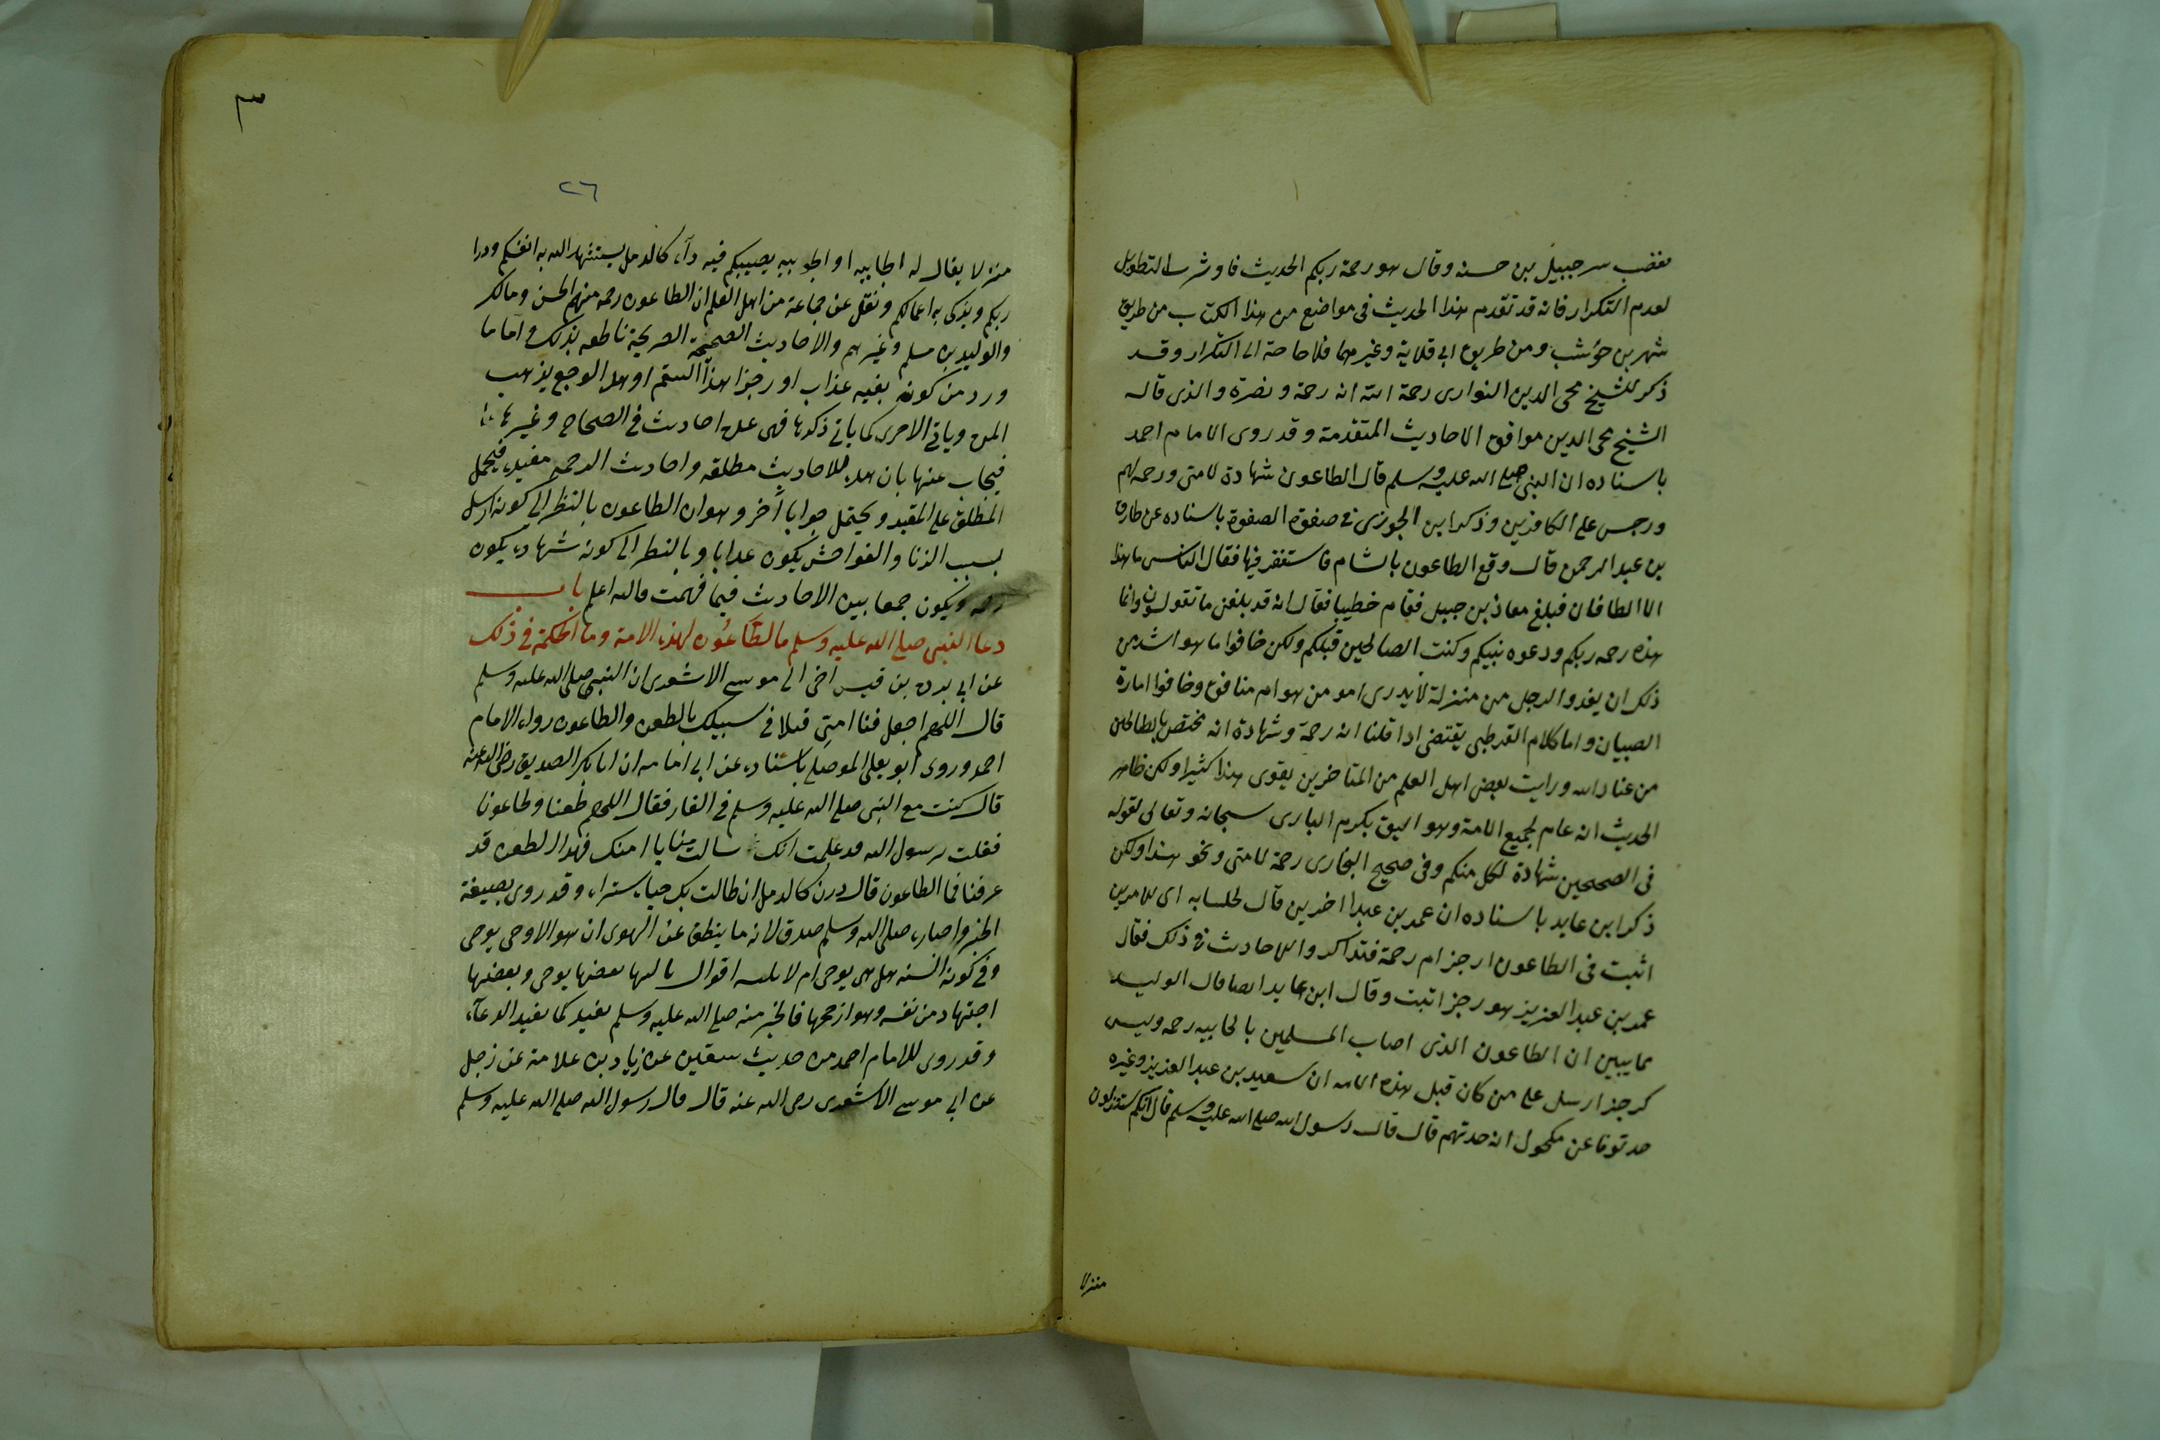 فغضب سرجبيل بن حسنه وقال هو رحمة ربكم الحديث فاوثرت التطويل
لعدم التكرار فانه قد تقدم هذا الحديث فى مواضع من هذا الكتاب من طريق
شهر بن حوشب ومن طريق ابى قلابة وغيرهما فلا حاجة الى التكرار وقد
ذكر الشيخ محى الدين النواوى رحمة الله انه رحمة و نضرة والذى قاله
الشيخ محى الدين موافق الاحاديث المتقدمة وقد روى الامام احمد
باسناده ان النبى صلى الله عليه وسلم قال الطاعون شهادة لامتى ورحمه لهم
ورجس على الكافرين وذكر ابن الجوزى فى صفوة الصفوة باسناده عن طارق
بن عبد الرحمن قال وقع الطاعون بالشام فاستغفر فيها فقال الناس ما هذا
الا الطافان فبلغ معاذ بن جبل فقام خطيبا فقال انه قد بلغنى ما تقولون وانما
هذه رحمه ربكم ودعوه نبيكم وكنت الصالحين قبلكم ولكن خافوا ما هو اشد من
ذلك ان يغدو الرجل من منزلة لا يدرى امو من هو ام منافق وخافوا امارة
الصبيان واما كلام القرطبى يقتضى اذا قلنا انه رحمة وشهادة انه مختص بالطالحين
من عباد الله ورايت بعض اهل العلم من المتاخرين يقوى هذا كثيرا ولكن ظاهر
الحديث انه عام لجميع الامة وهو اليق بكرم البارى سبحانه وتعالى لقوله
فى الصحيحين شهادة لكل منكم وفى صحيح البخارى رحمة لامتى ونحو هذا ولكن
ذكر ابن عايد باسناده ان عمر بن عبد اخرين قال لجلسايه اى الامرين
اثبت فى الطاعون ارجز ام رحمة فتذاكروا الاحاديث فى ذلك فقال
عمر بن عبد العزيز هو رجز اثبت وقال ابن عايد ايضا قال الوليد
مما يبين ان الطاعون الذى اصاب المسلمين بالجابيه رحمه وليس
كرجز ارسل على من كان قبل هذه الامه ان سعيد بن عبد العزيز وغيره
حدثونا عن مكحول انه حدثهم قال قال رسول الله صلى الله عليه وسلم قال انكم ستنزلون
منزلا
٣
٢٦
منزلا يقال له الجابيه او الجويبيه يصيبكم فيه دآء كالدمل يستشهد الله به انفسكم وذرا
ربكم ويزكى به اعمالكم ونقل عن جماعة من اهل العلم ان الطاعون رحمه منهم الحسن ومالك
والوليد بن مسلم وغيرهم والاحاديث الصحيحة الصريحة ناطقه بذلك واما ما
ورد من كونه بقيه عذاب او رجز اهذا السقم او هذا الوجع يذهب
المره وياتى الاخرى كما ياتى ذكرها فهى على احاديث فى الصحاح وغيرها
فيجاب عنها بان هذه الاحاديث مطلقه واحاديث الرحمه مقيده فيحمل
المطلق على المقيد ويحتمل جوابا آخر وهو ان الطاعون بالنظر الى كونه ارسل
بسبب الزنا والفواحش يكون عذابا وبالنظر الى كونه شهاده يكون
رحمه ويكون جمعا بين الاحاديث فيما فهمت والله اعلم باب
دعا النبى صلى الله عليه وسلم بالطاعون لهذه الامة وما الحكمة فى ذلك
عن ابى بردة بن قيس اخى ابى موسى الاشعرى ان النبى صلى الله عليه وسلم
قال اللهم اجعل فنا امتى قتلا فى سبيلك بالطعن والطاعون رواه الامام
احمد وروى ابو يعلى الموصلى باسناده عن ابى امامه ان ابا بكر الصديق رضى الله عنه
قال كنت مع النبى صلى الله عليه وسلم فى الغار فقال اللهم طعنا وطاعونا
فقلت يرسول الله قد علمت انك سالت منايا امتك فهذا الطعن قد
عرفنا فما الطاعون قال درن كالدمل ان طالت بك حياه ستراه وقد روى بصيغة
الخبر واخباره صلى الله وسلم صدق لانه ما ينطق عن الهوى ان هو الا وحى يوحى
وفى كونه السنه هل هى يوحى ام لا ثلاثه اقوال ثالثها بعضها يوحى وبعضها
اجتهاد من نفسه وهو ارجحها فالخبر منه صلى الله عليه وسلم يفيد كما يفيد الدعآء
وقد روى الامام احمد من حديث سفين عن زياد بن علامة عن رجل
عن ابى موسى الاشعرى رضى الله عنه قال قال رسول الله صلى الله عليه وسلم